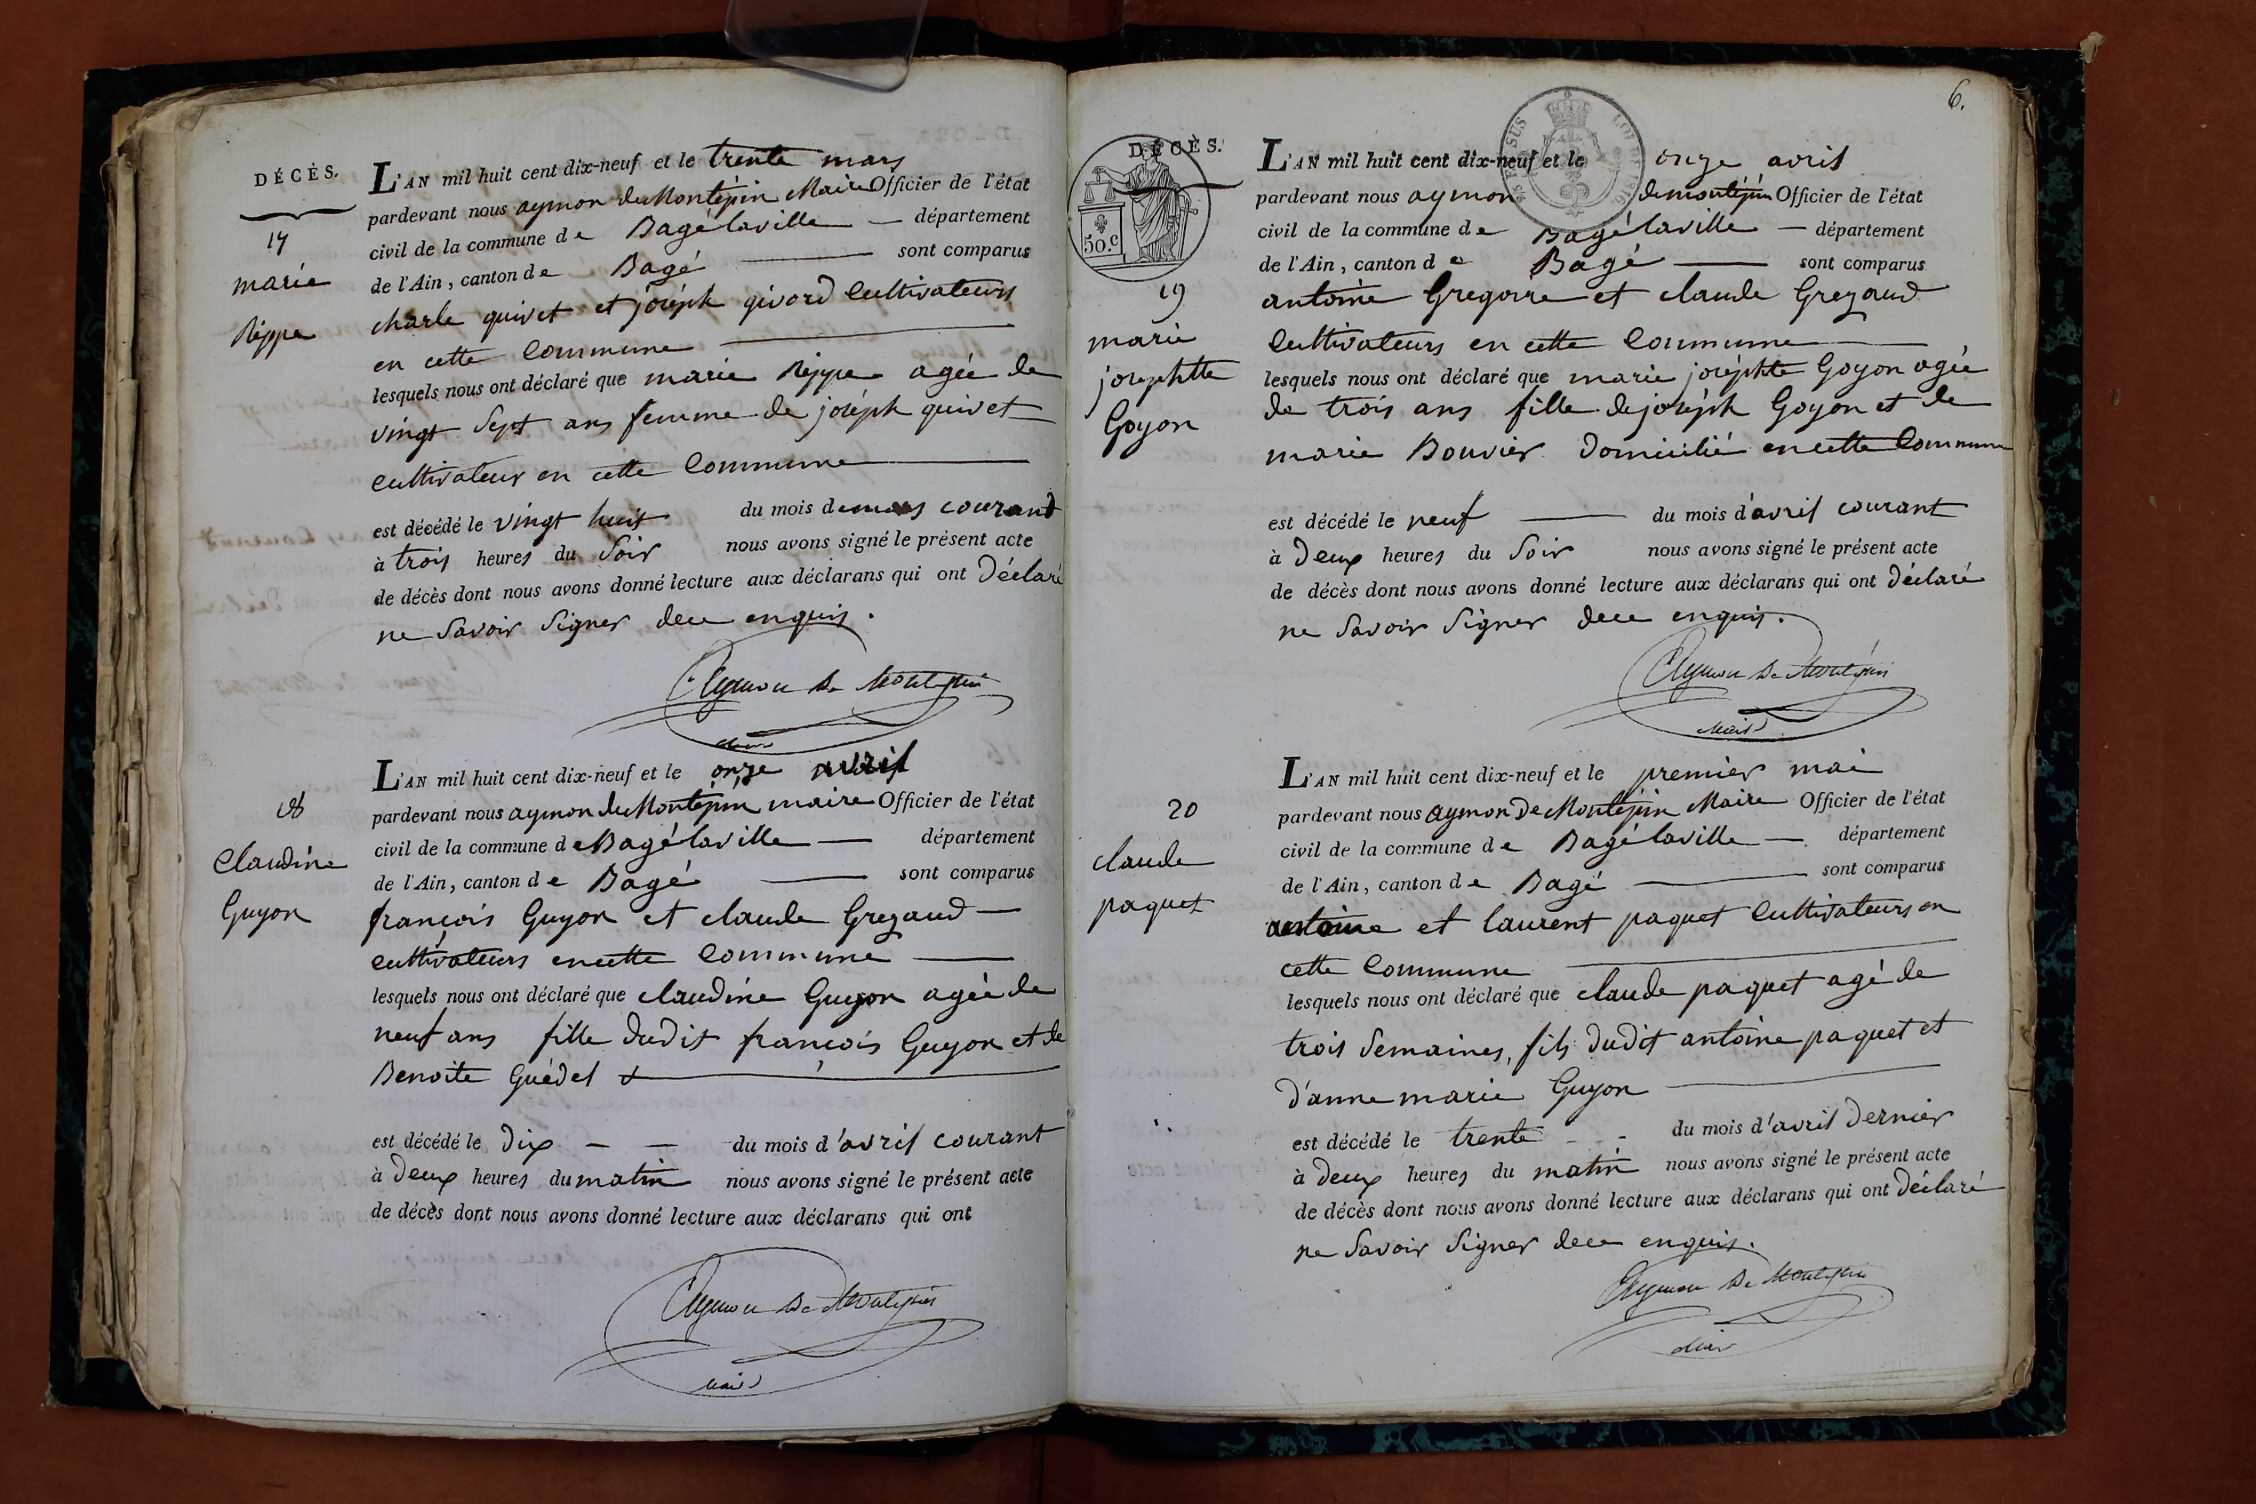 DÉCÈS.
17
marie
Rippe
L'AN mil huit cent dix-neuf et le trente mars
pardevant nous aymon de Montépin Maire Officier de l'état
civil de la commune de Bagé laville — département
de l'Ain, canton de Bagé — sont comparus
charle quivet et joséph givord Cultivateurs
en cette Commune
lesquels nous ont déclaré que marie Rippe agée de
vingt Sept ans femme de joséph quivet
cultivateur en cette Commune
est décédé le vingt huit du mois de mars courant
à trois heures du Soir nous avons signé le présent acte
de décès dont nous avons donné lecture aux déclarans qui ont Déclaré
ne Savoir Signer de ce enquis.
Aymon De Montépin
Maire
18
Claudine
Guyon
L'AN mil huit cent dix-neuf et le onze avril
pardevant nous aymon de Montépin maire Officier de l'état
civil de la commune de Bagé laville — département
de l'Ain, canton de Bagé — sont comparus
françois Guyon et claude Grezaud —
cultivateurs en cette Commune —
lesquels nous ont déclaré que claudine Guyon agée de
neuf ans fille dudit françois Guyon et de
Benoite Guédel
est décédé le dix — — du mois d'avril courant
à Deux heures du matin nous avons signé le présent acte
de décès dont nous avons donné lecture aux déclarans qui ont
Aymon De Montépin
Maire
6.
DÉCÈS.
50.c
19
marie
joséphte
Goyon
L'AN mil huit cent dix-neuf et le onze avril
pardevant nous aymon de montépin Officier de l'état
civil de la commune de Bagé laville — département
de l'Ain, canton de Bagé — sont comparus
antoine Gregoire et claude Grezaud
Cultivateurs en cette Commune
lesquels nous ont déclaré que marie joséphte Goyon agée
de trois ans fille de joséph Goyon et de
marie Bouvier Domicilié en cette Commune
est décédé le neuf — du mois d'avril courant
à Deux heures du Soir nous avons signé le présent acte
de décès dont nous avons donné lecture aux déclarans qui ont Déclaré
ne Savoir Signer de ce enquis.
Aymon De Montépin
Maire
20
claude
paquet
L'AN mil huit cent dix-neuf et le premier mai
pardevant nous aymon De Montépin Maire Officier de l'état
civil de la commune de Bagé laville — département
de l'Ain, canton de Bagé — sont comparus
antoine et laurent paquet Cultivateurs en
cette Commune
lesquels nous ont déclaré que claude paquet agé de
trois Semaines, fils dudit antoine paquet et
d'anne marie Guyon
est décédé le trente — - du mois d'avril Dernier
à Deux heures du matin nous avons signé le présent acte
de décès dont nous avons donné lecture aux déclarans qui ont Déclaré
ne Savoir Signer de ce enquis.
Aymon De Montépin
Maire